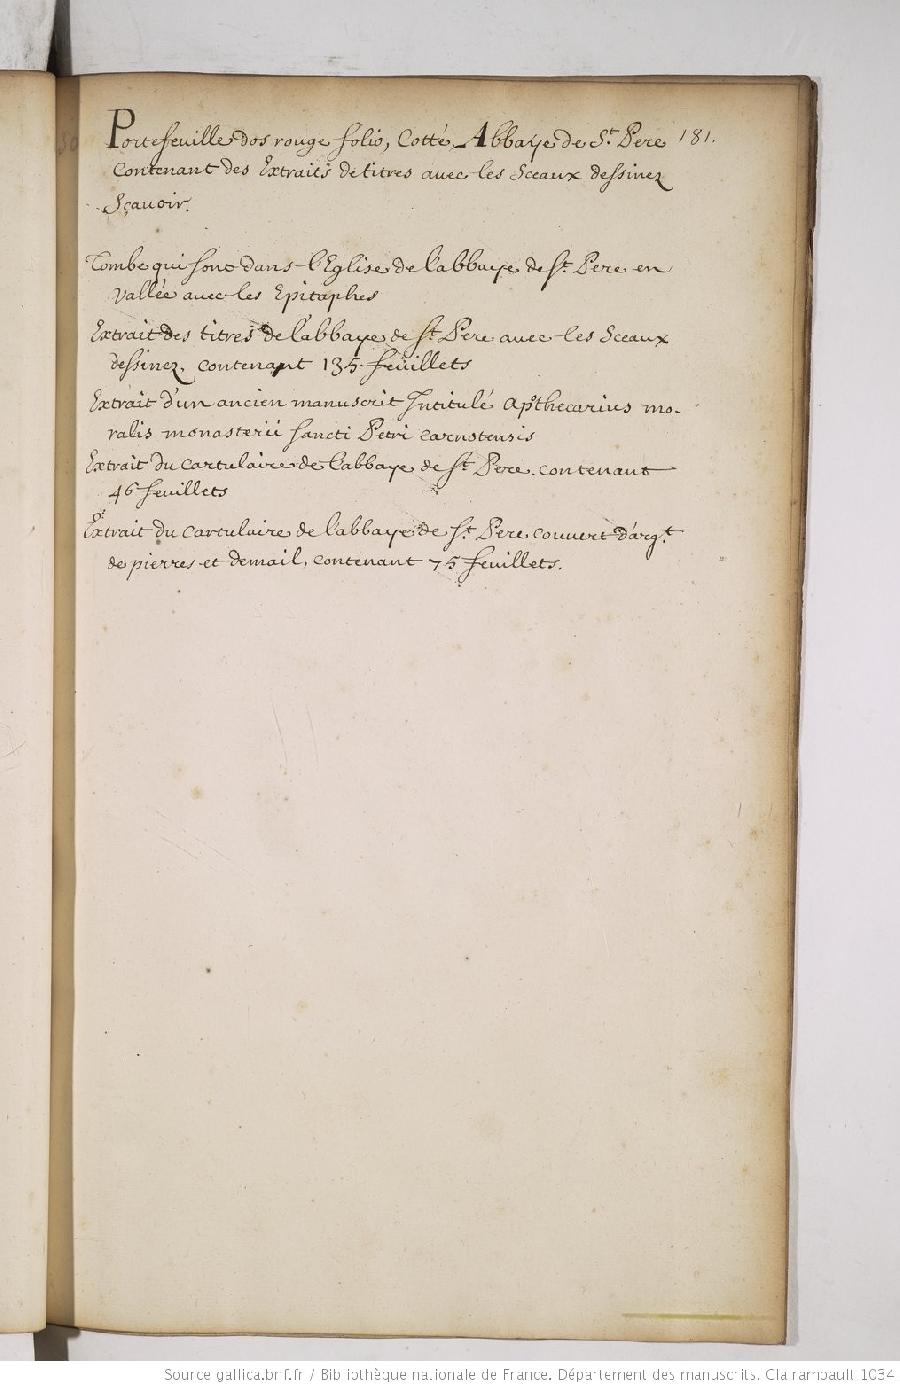 Portefeuille dos rouge folio, Cotté Abbaye de St. Pere 181.
Contenant des Extraits de titres avec les Sceaux dessinez
Sçavoir.
Tombe qui sont dans l'Eglise de l'abbaye de St. Pere en
vallée avec les Epitaphes
Extrait des titres de l'abbaye de St. Pere avec les Sceaux
dessinez, contenant 135 feüillets
Extrait d'un ancien manuscrit Intitulé Apthecarius mo-
ralis monasterii sancti Petri Carnotensis
Extrait du Cartulaire de l'abbaye de St. Pere. contenant
46 feuillets
Extrait du Cartulaire de l'abbaye de St. Pere, couvert d'argt.
de pierres et demail, contenant 75 feuillets.
Source gallica.bnf.fr / Bibliothèque nationale de France. Département des manuscrits. Clairambault 1034